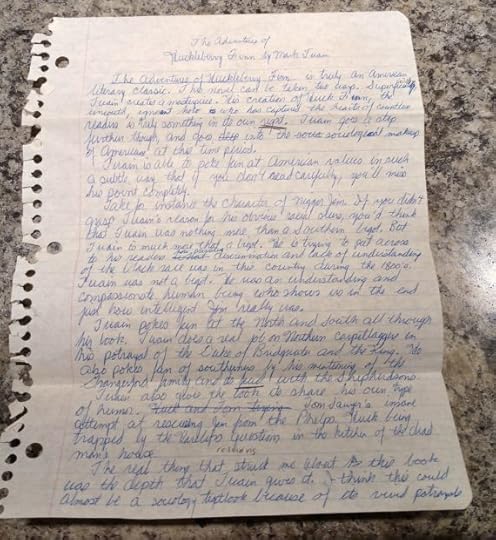 The Adventures of
Huckleberry Finn by Mark Twain
The Adventures of Huckleberry Finn is truly an American
literary classic. This novel can be taken two ways. Superficially,
Twain creates a masterpiece. His creation of Huck Finn, the
uncouth, ignorant hero is who has captured the hearts of countless
readers is truly something in its own right. Twain goes a step
further though, and goes deep into the socio sociological makeup
of Americans at this time period.
Twain is able to poke fun at American values in such
a subtle way that if you don't read carefully, you'll miss
his point completly.
Take for instance the character of Nigger Jim. If you didn't
grasp Twain's reason for his obvious racial slurs, you'd think
that Twain was nothing more than a Southern bigot. But
Twain is much more than a bigot. He is trying to get across
to his readers the discrimination and lack of understanding
of the black race in this country during the 1800's.
Twain was not a bigot. He was an understanding and
compassionate human being who shows us in the end
just how intelligent Jim really was.
Twain pokes fun at the North and South all through
his book. Twain does a real job on Northern Carpetbaggers in
his potrayal of the Duke of Bridgewater and the King. He
also pokes fun of southerners by his mentioning of the
Grangerford family and its feud with the Shepherdsons.
Twain also gives the book its share his own type
of humor. Huck and Tom trying Tom Sawyer's insane
attempt at rescuing Jim from the Phelps. Huck being
trapped by the questions in the kitchen of the dead
man's house.
relatives
The real thing that struck me about this book
was the depth that Twain gives it. I think this could
almost be a sociology textbook because of its vivid potrayals